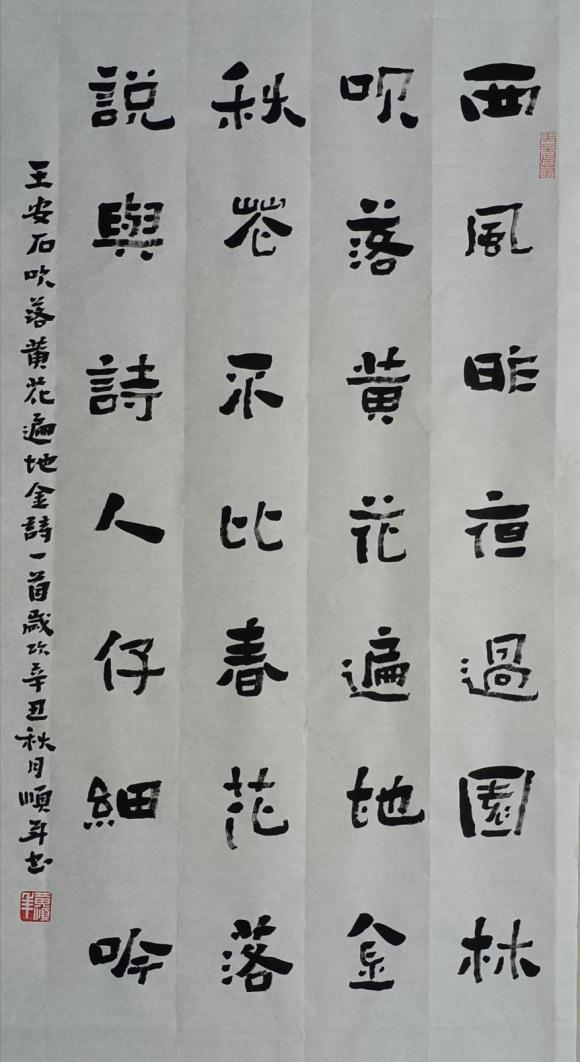 西風昨亱過園林
吹落黄花遍地金
秋花不比春花落
説與詩人仔細吟
王安石吹落黄花遍地金詩一首歲次辛丑秋月順年书
黄順年